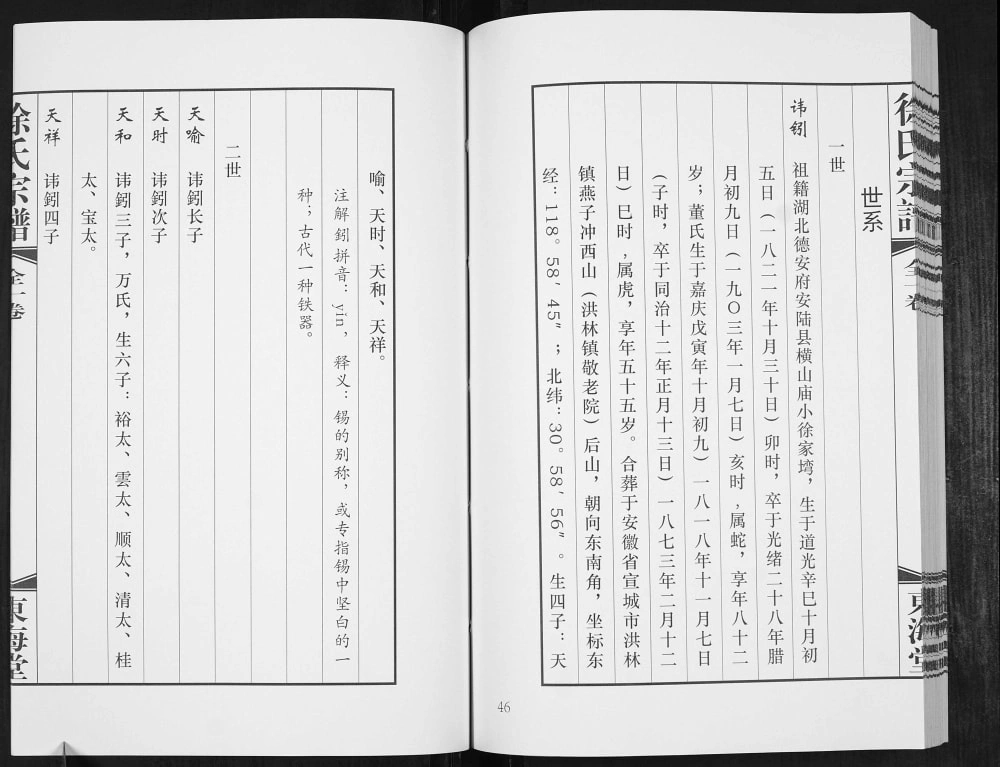 徐氏宗譜
全一卷
東海堂
世系
一世
讳釖 祖籍湖北德安府安陆县横山庙小徐家塆，生于道光辛巳十月初
五日（一八二一年十月三十日）卯时，卒于光绪二十八年腊
月初九日（一九〇三年一月七日）亥时，属蛇，享年八十二
岁；董氏生于嘉庆戊寅年十月初九）一八一八年十一月七日
（子时，卒于同治十二年正月十三日）一八七三年二月十二
日）巳时，属虎，享年五十五岁。合葬于安徽省宣城市洪林
镇燕子冲西山（洪林镇敬老院）后山，朝向东南角，坐标东
经：118。58′45″；北纬：30。58′56″。生四子：天
46
喻、天时、天和、天祥。
注解釖拼音：yǐn，释义：锡的别称，或专指锡中坚白的一
种；古代一种铁器。
二世
天喻 讳釖长子
天时 讳釖次子
天和 讳釖三子，万氏，生六子：裕太、雲太、顺太、清太、桂
太、宝太。
天祥 讳釖四子
徐氏宗譜
全一卷
東海堂